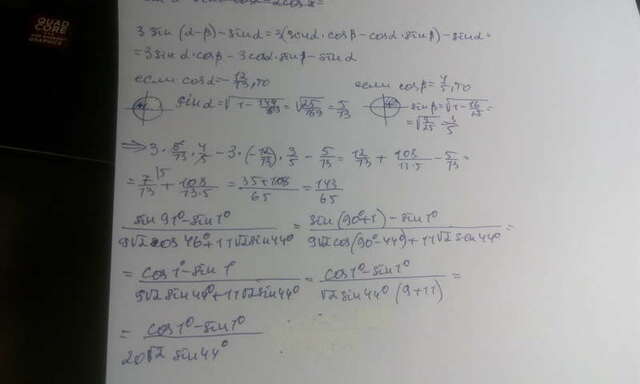 QUAD
CORE
GRAPHICS
3 sin (α-β) - sinα = 3(sinα · cosβ - cosα · sinβ) - sinα =
= 3 sinα · cosβ - 3 cosα · sinβ - sinα
если cosα = -12/13, то
если cosβ = 4/5, то
sinα = √(1 - 144/169) = √(25/169) = 5/13
sinβ = √(1 - 16/25) =
= √(9/25) = 3/5
⇒ 3 · 5/13 · 4/5 - 3 · (-12/13) · 3/5 - 5/13 = 12/13 + 108/(13·5) - 5/13 =
= 7/13 + 108/(13·5) = (35+108)/65 = 143/65
(sin 91° - sin 1°)/(9√2 cos 46° + 11√2 sin 44°) = (sin(90°+1) - sin 1°)/(9√2 cos(90°-44°) + 11√2 sin 44°) =
= (cos 1° - sin 1°)/(9√2 sin 44° + 11√2 sin 44°) = (cos 1° - sin 1°)/(√2 sin 44° (9+11)) =
= (cos 1° - sin 1°)/(20√2 sin 44°)